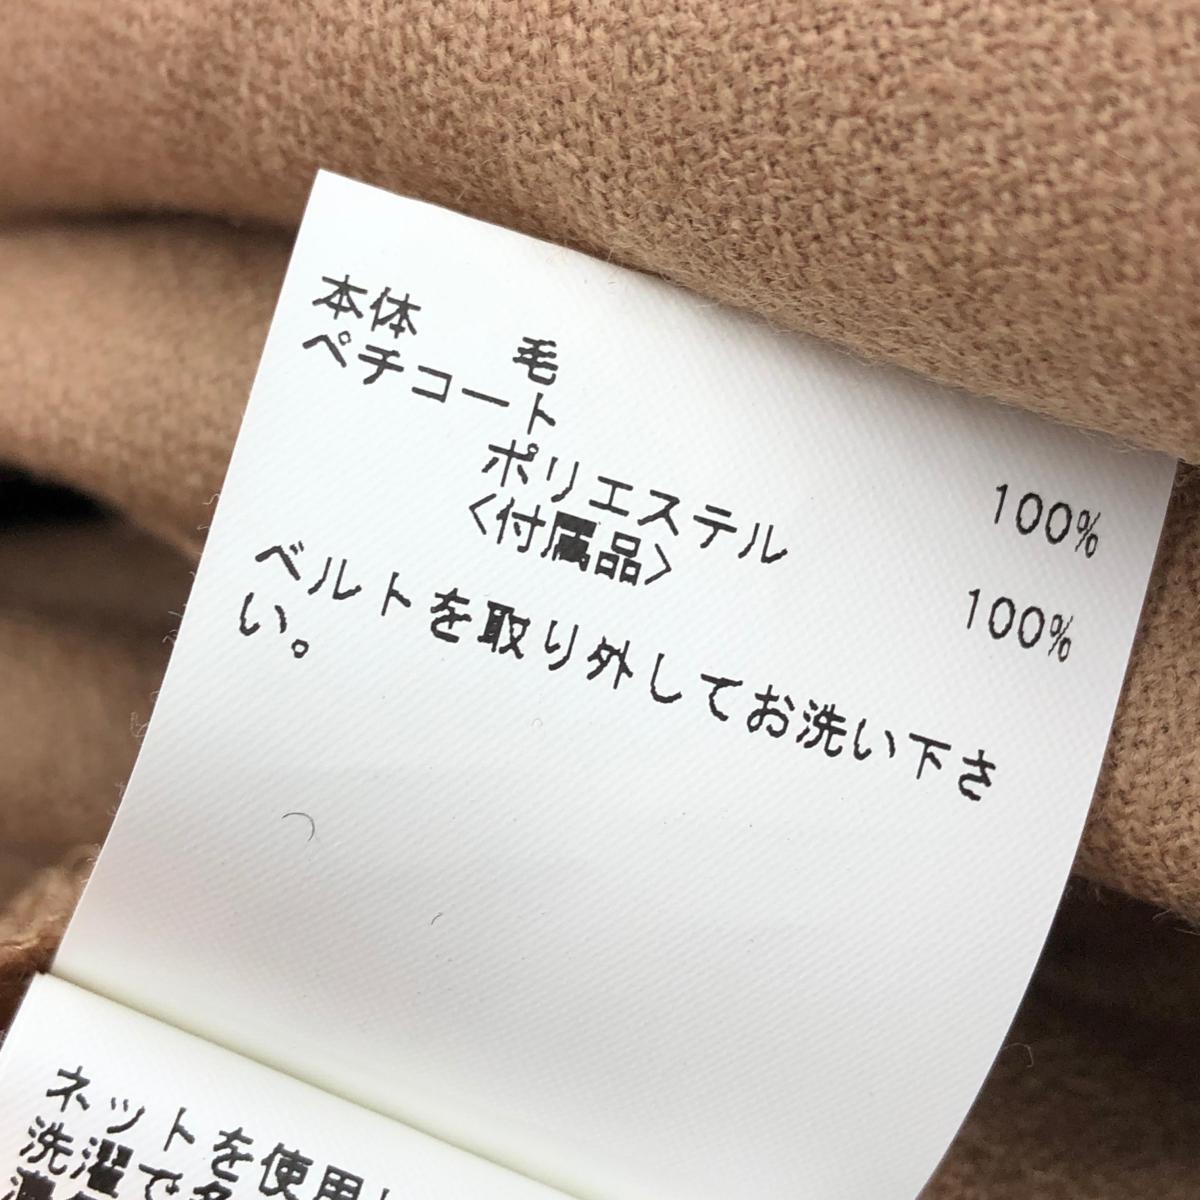 本体　毛　100%
ペチコート
ポリエステル　100%
<付属品>
ベルトを取り外してお洗い下さ
い。
ネットを使用
洗濯で多